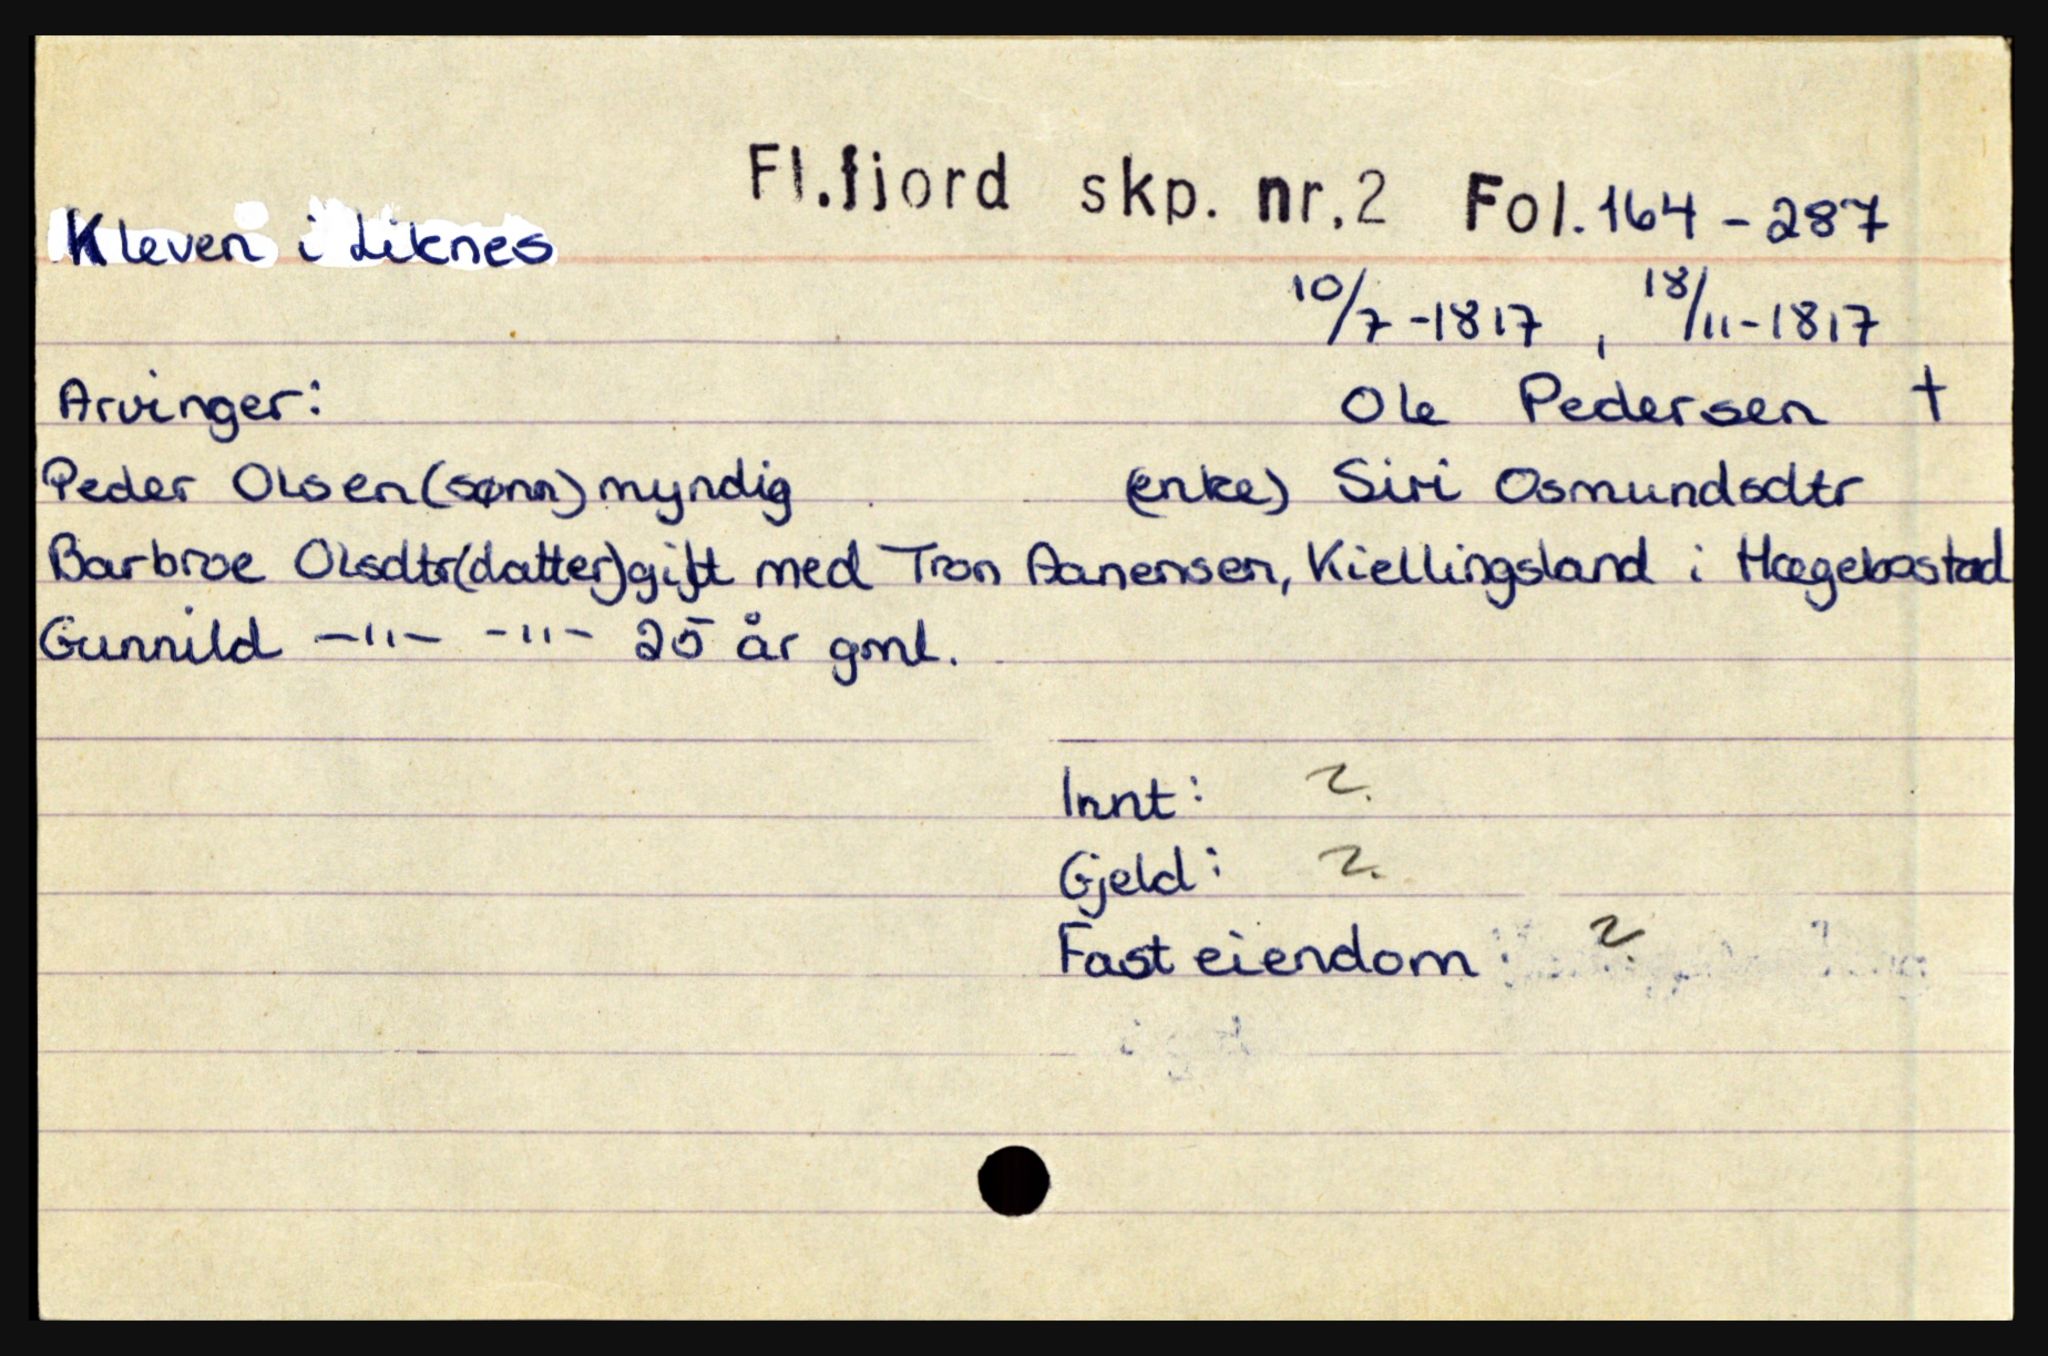 Fl.fjord skp. nr.2 Fol. 164 - 287
Kleven i Liknes
10/7 -1817 , 18/11-1817
Arvinger: Ole Pedersen †
Peder Olsen (sønn) myndig (enke) Siri Osmundsdtr
Barbroe Olsdtr (datter) gift med Tron Aanensen, Kiellingsland i Hægebostad
Gunnild -"- -"- 25 år gml.
Innt: ?
Gjeld: ?
Fast eiendom : ?